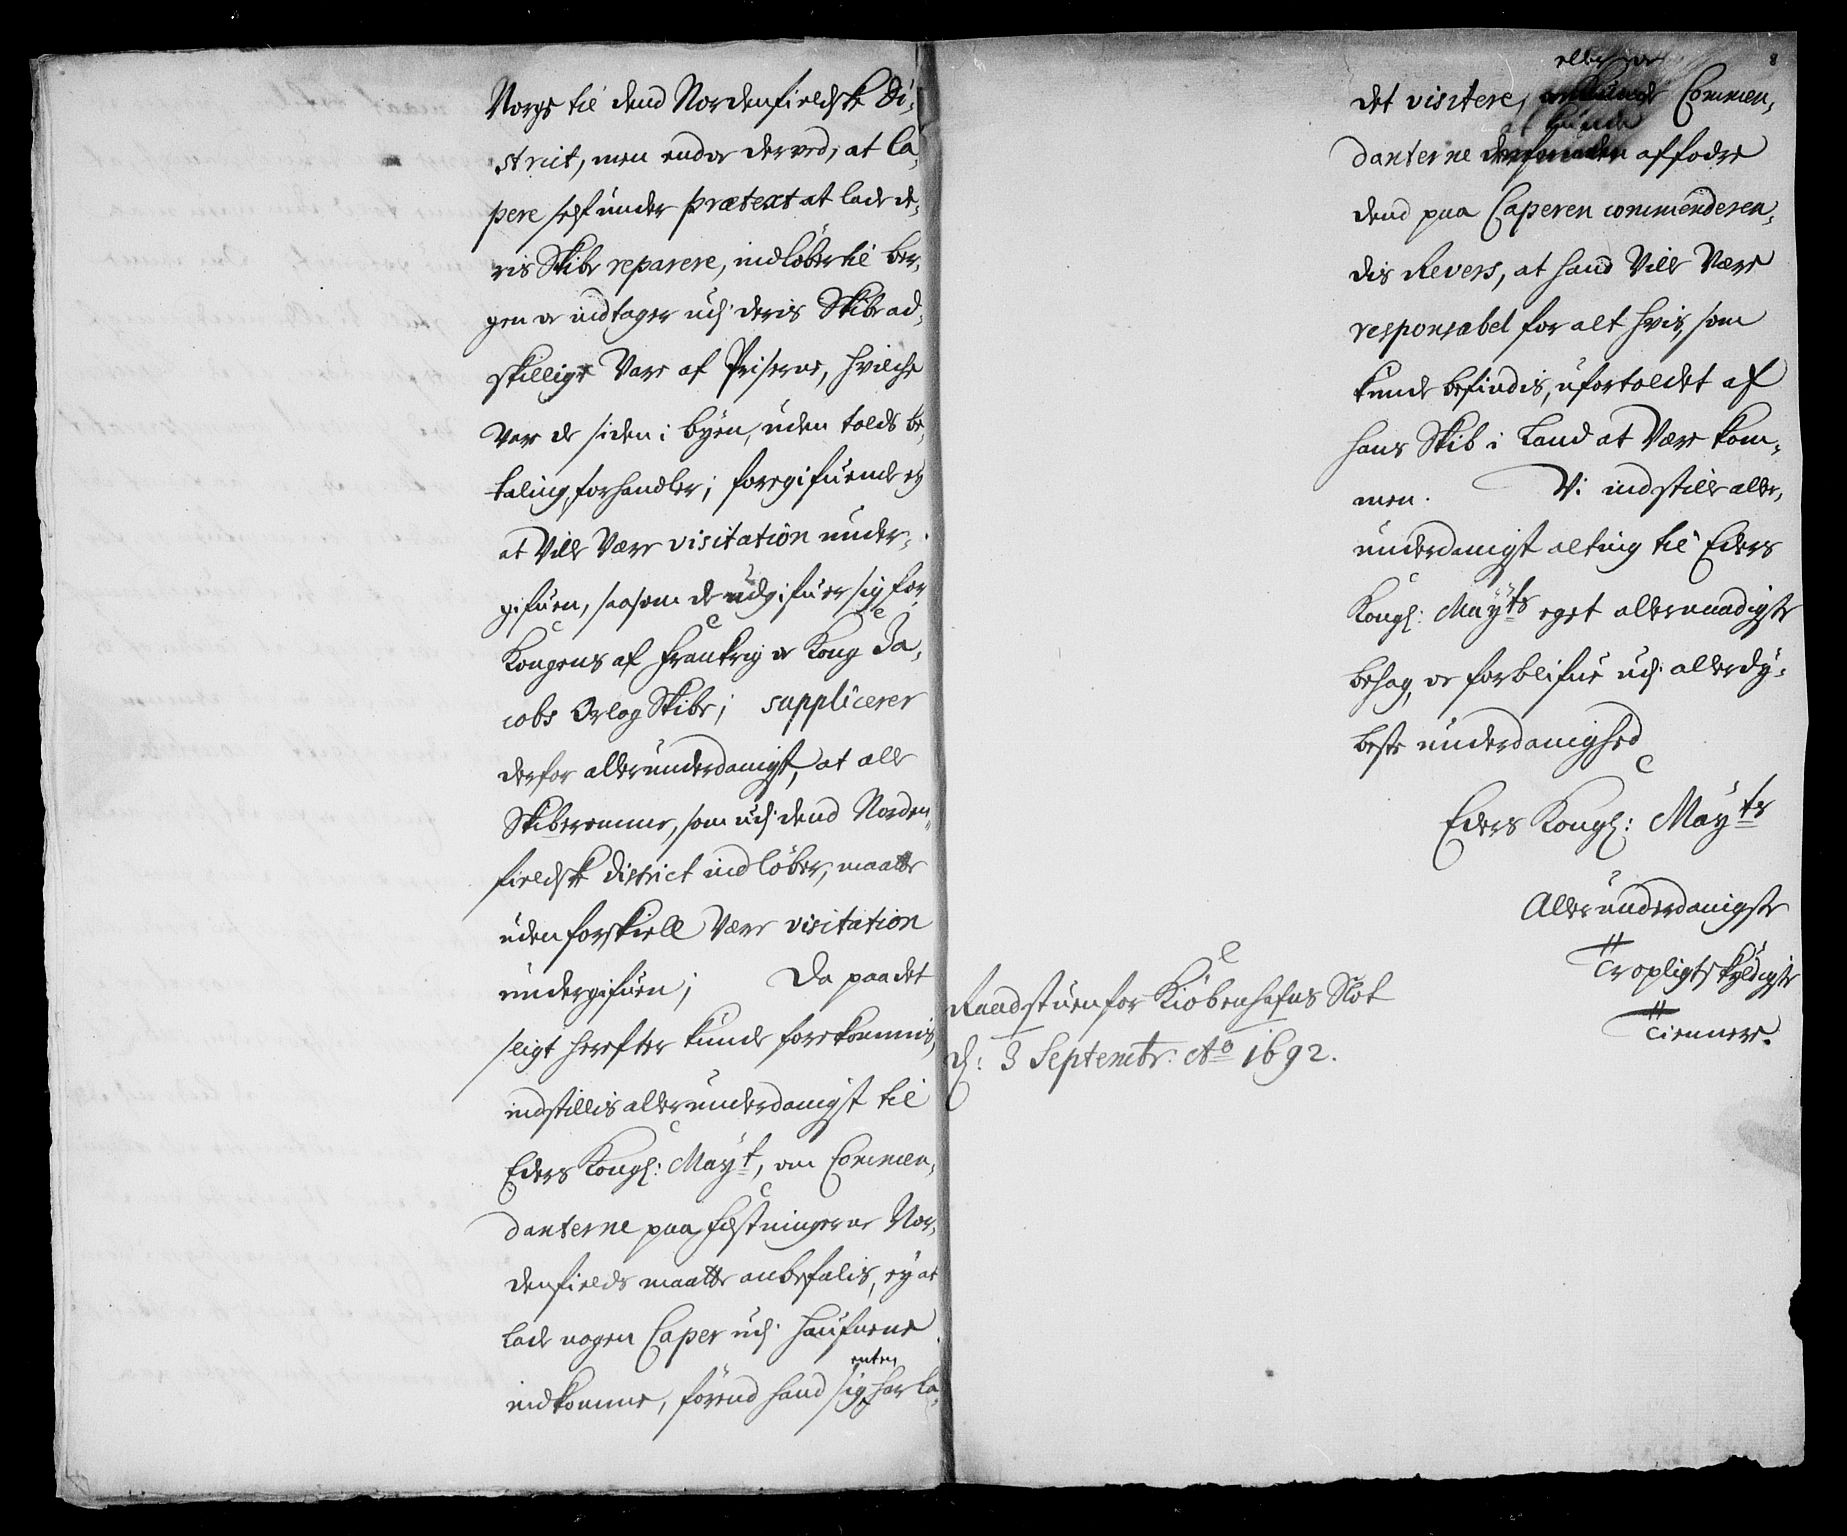 Norge til dend Nordenfieldsk di-
strict, men endoc derved, at Ca-
pere self under prætext at lade de-
ris Skibe reparere, indløber til Ber-
gen oc indtager udj deris Skibe ad-
skillige Vare af Priserne, hvilche
Vare de siden i byen, uden tolds be-
taling, forhandler; foregifuende ej
at Ville Være visitation under-
gifuen, saasom de udgifuer sig for
Kongens af Frankrig oc Kong Ja-
cobs Orlog Skibe; supplicerer
derfor allerunderdanigst, at alle
Skiberomme, som udj dend Norden-
fieldsk district indløber, maatte
uden forskiell Være visitation
undergifuen; Da paa det
sligt herefter kunde forekommis,
indstillis allerunderdanigst til
Eders Kongl: Mayt, om Commen-
danterne paa Fæstningerne Nor-
denfields maatte anbefalis, ey at
lade nogen Caper udj Haufnene
indkomme, førend hand sig enten har la-
8
det visitere, eller oc Commen-
danterne kunde affodre
dend paa Caperen commenderen-
dis Revers, at hand Ville Være
responsabel for alt hvis, som
kunde befindis, ufortoldet af
hans Skib i Land at Være kom-
men. Vi indstille aller-
underdanigst alting til Eders
Kongl: Mayts eget allernaadigste
behag, oc forblifue udj allerdy-
beste underdanighed
Eders Kongl: Mayts
Allerunderdanigste
Tropligtskyldigste
Tiennere.
Raadstuen for Kiøbenhafns Slot
d: 3 Septembr: Ao 1692.